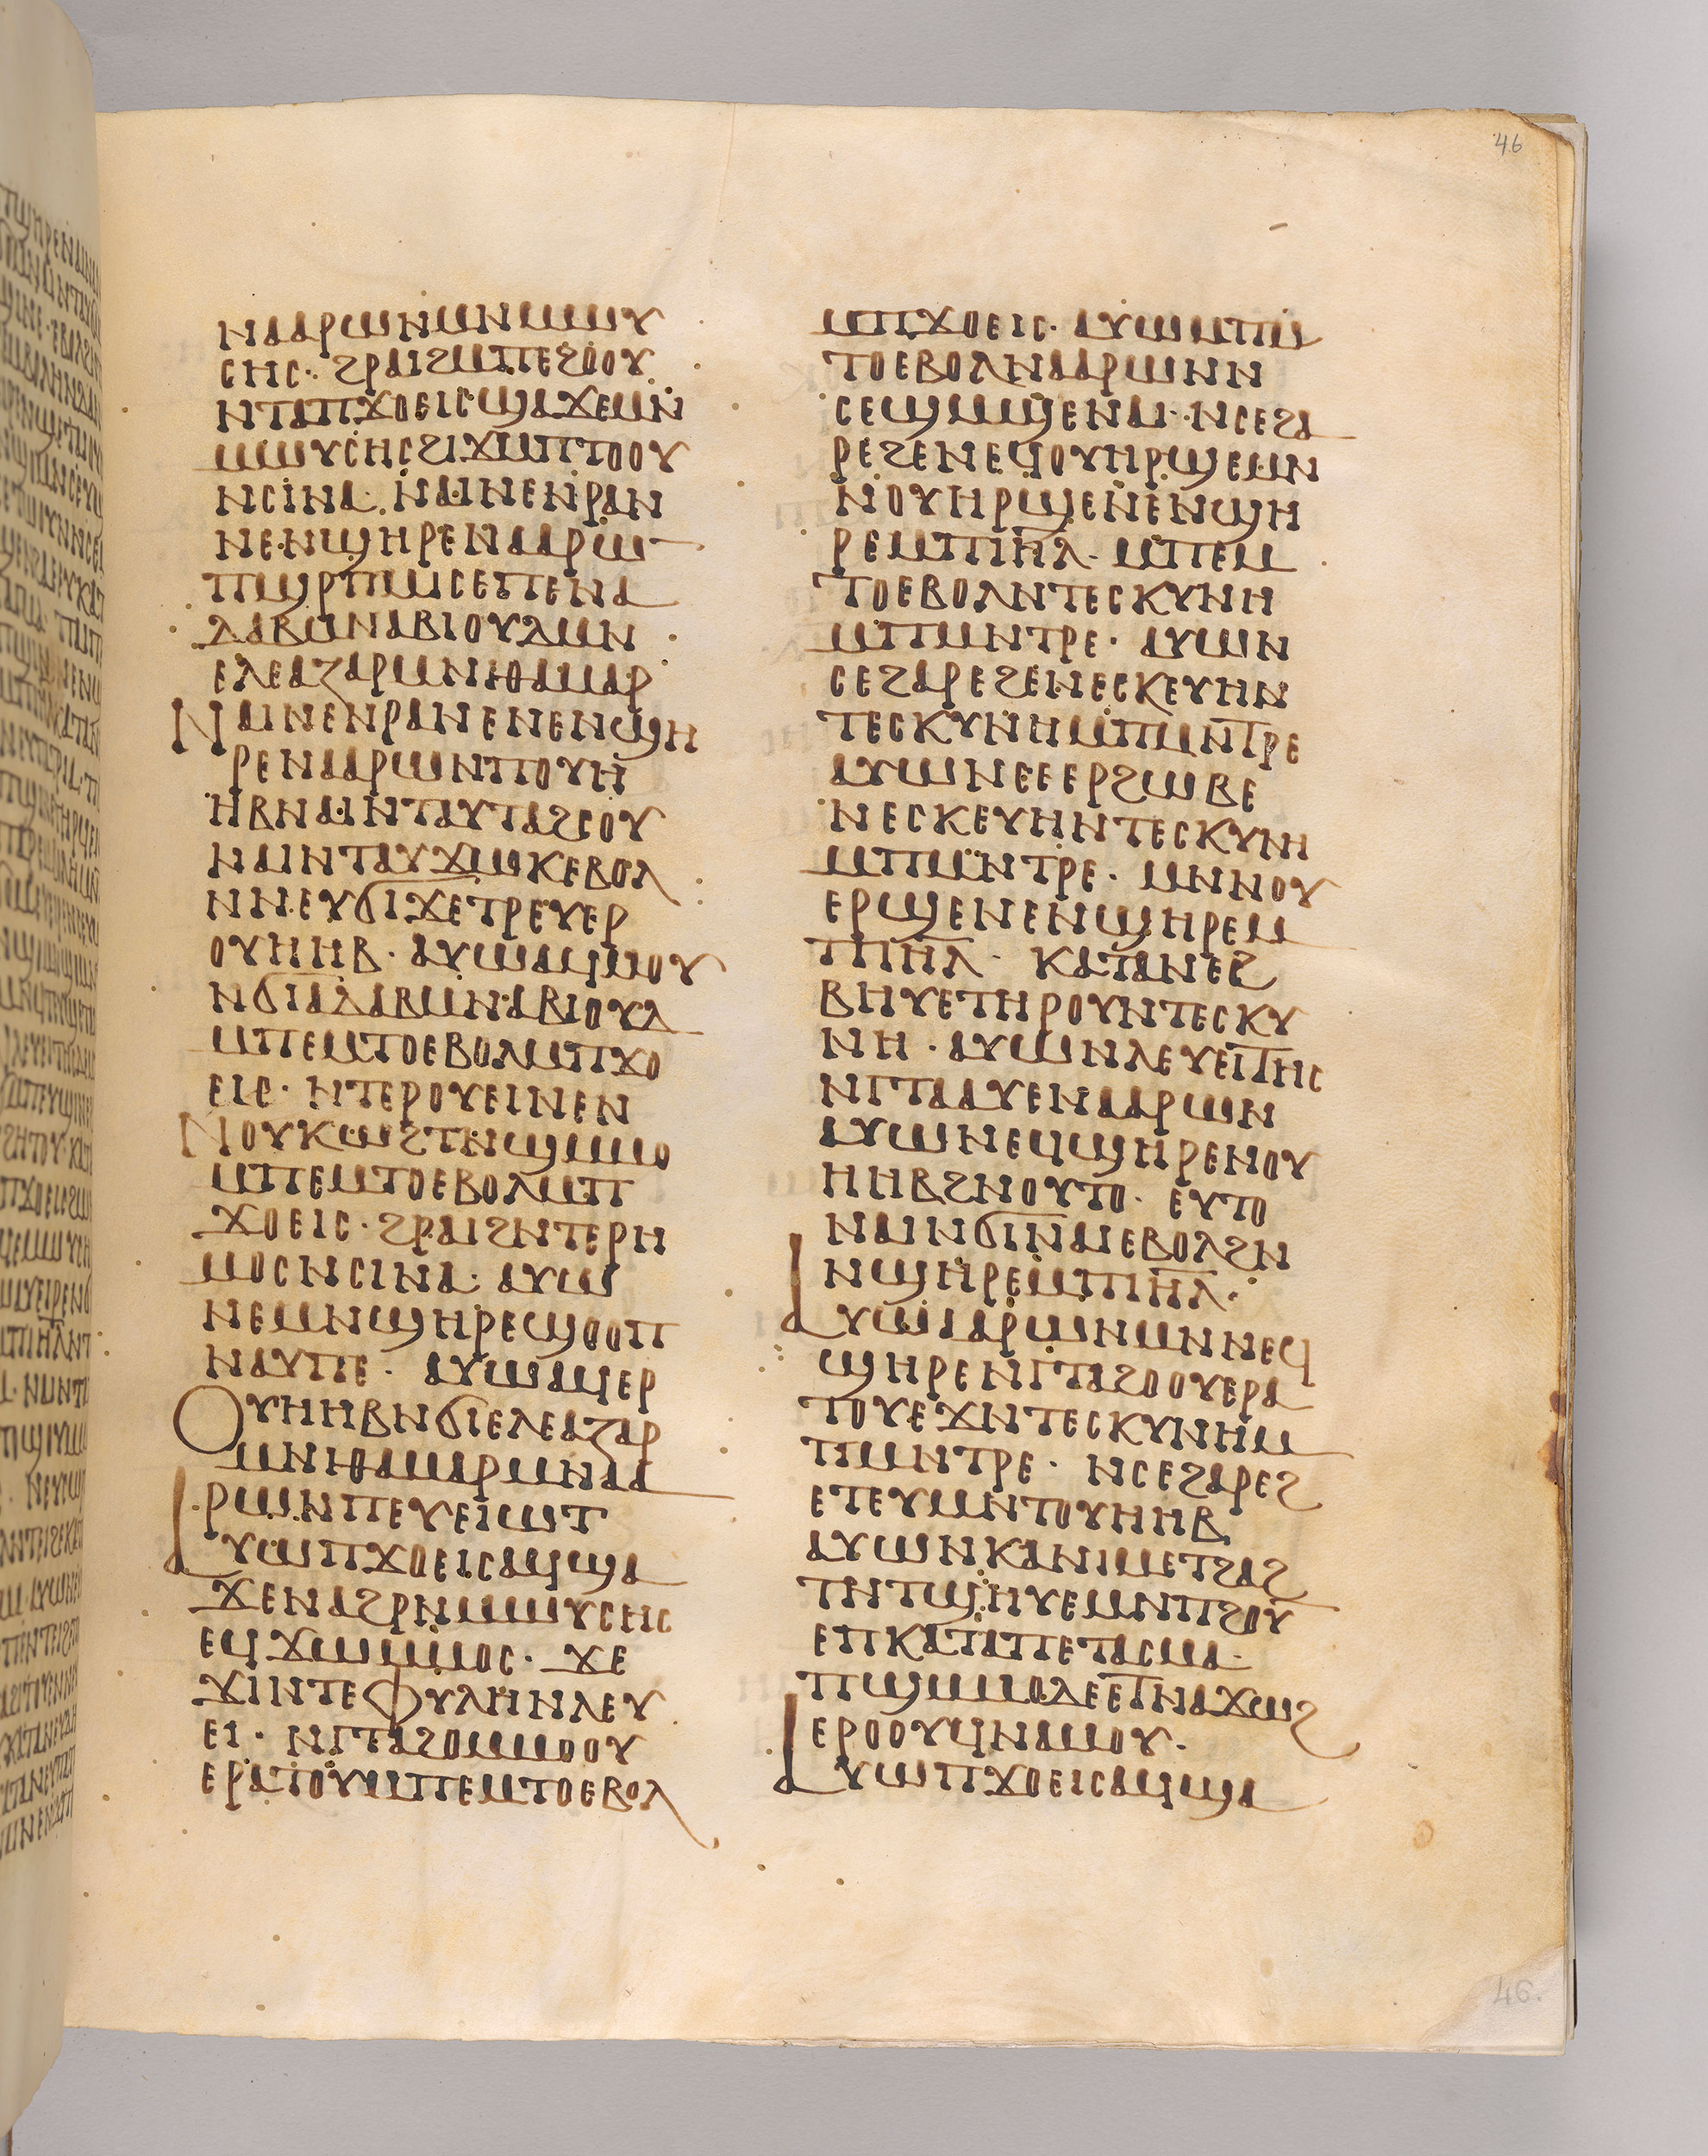 46
ⲛⲁⲁⲣⲱⲛⲙⲛⲙⲱⲩ
ⲥⲏⲥ· ϩⲣⲁⲓϩⲙⲡⲉϩⲟⲟⲩ
ⲛⲧⲁⲡϫⲟⲉⲓⲥϣⲁϫⲉⲙⲛ
ⲙⲱⲩⲥⲏⲥϩⲓϫⲙⲡⲧⲟⲟⲩ
ⲛⲥⲓⲛⲁ· ⲛⲁⲓⲛⲉⲛⲣⲁⲛ
ⲛⲉⲛϣⲏⲣⲉⲛⲁⲁⲣⲱ̅
ⲡϣⲣⲡⲙⲓⲥⲉⲡⲉⲛⲁ
ⲇⲁⲃⲙⲛⲁⲃⲓⲟⲩⲇⲙⲛ
ⲉⲗⲉⲁⲍⲁⲣⲙⲛⲓⲑⲁⲙⲁⲣ
ⲛⲁⲓⲛⲉⲛⲣⲁⲛⲉⲛⲉⲛϣⲏ
ⲣⲉⲛⲁⲁⲣⲱⲛⲡⲟⲩⲏ
ⲏⲃⲛⲁⲓⲛⲧⲁⲩⲧⲁϩⲥⲟⲩ
ⲛⲁⲓⲛⲧⲁⲩϫⲱⲕⲉⲃⲟⲗ
ⲛⲛⲉⲩϭⲓϫⲉⲧⲣⲉⲩⲉⲣ
ⲟⲩⲏⲏⲃ· ⲁⲩⲱⲁϥⲙⲟⲩ
ⲛϭⲓⲁⲇⲁⲃⲙⲛⲁⲃⲓⲟⲩⲇ
ⲙⲡⲉⲙⲧⲟⲉⲃⲟⲗⲙⲡϫⲟ
ⲉⲓⲥ· ⲛⲧⲉⲣⲟⲩⲉⲓⲛⲉⲛ
ⲛⲟⲩⲕⲱϩⲧⲛϣⲙⲙⲟ
ⲙⲡⲉⲙⲧⲟⲉⲃⲟⲗⲙⲡ
ϫⲟⲉⲓⲥ· ϩⲣⲁⲓϩⲛⲧⲉⲣⲏ
ⲙⲟⲥⲛⲥⲓⲛⲁ· ⲁⲩⲱ
ⲛⲉⲙⲛϣⲏⲣⲉϣⲟⲟⲡ
ⲛⲁⲩⲡⲉ· ⲁⲩⲱⲁϥⲉⲣ
ⲟⲩⲏⲏⲃⲛϭⲓⲉⲗⲉⲁⲍⲁⲣ
ⲙⲛⲓⲑⲁⲙⲁⲣⲙⲛⲁⲁ
ⲣⲱⲛⲡⲉⲩⲉⲓⲱⲧ
ⲁⲩⲱⲡϫⲟⲉⲓⲥⲁϥϣⲁ
ϫⲉⲛⲁϩⲣⲛⲙⲱⲩⲥⲏⲥ
ⲉϥϫⲱⲙⲙⲟⲥ· ϫⲉ
ϫⲓⲛⲧⲉⲫⲩⲗⲏⲛⲗⲉⲩ
ⲉⲓ· ⲛⲅⲧⲁϩⲟⲙⲙⲟⲟⲩ
ⲉⲣⲁⲧⲟⲩⲙⲡⲉⲙⲧⲟⲉⲃⲟⲗ
ⲙⲡϫⲟⲉⲓⲥ· ⲁⲩⲱⲙⲡⲙ
ⲧⲟⲉⲃⲟⲗⲛⲁⲁⲣⲱⲛⲛ
ⲥⲉϣⲙϣⲉⲛⲁⲓ· ⲛⲥⲉϩⲁ
ⲣⲉϩⲉⲛⲉϥⲟⲩⲏⲣϣⲉⲙⲛ
ⲛⲟⲩⲏⲣϣⲉⲛⲉⲛϣⲏ
ⲣⲉⲙⲡⲓⲏ̅ⲗ· ⲙⲡⲉⲙ
ⲧⲟⲉⲃⲟⲗⲛⲧⲉⲥⲕⲩⲛⲏ
ⲙⲡⲙⲛⲧⲣⲉ· ⲁⲩⲱⲛ
ⲥⲉϩⲁⲣⲉϩⲉⲛⲉⲥⲕⲉⲩⲏⲛ
ⲧⲉⲥⲕⲩⲛⲏⲙⲡⲙⲛⲧⲣⲉ
ⲁⲩⲱⲛⲉⲉⲉⲣϩⲱⲃⲉ
ⲛⲉⲥⲕⲉⲩⲏⲛⲧⲉⲥⲕⲩⲛⲏ
ⲙⲡⲙⲛⲧⲣⲉ· ⲙⲛⲛⲟⲩ
ⲉⲣϣⲉⲛⲉⲛϣⲏⲣⲉⲙ
ⲡⲓⲏ̅ⲗ· ⲕⲁⲧⲁⲛⲉϩ
ⲃⲏⲩⲉⲧⲏⲣⲟⲩⲛⲧⲉⲥⲕⲩ
ⲛⲏ· ⲁⲩⲱⲛⲗⲉⲩⲉⲓⲧⲏⲥ
ⲛⲅⲧⲁⲁⲩⲉⲛⲁⲁⲣⲱⲛ
ⲁⲩⲱⲛⲉϥϣⲏⲣⲉⲛⲟⲩ
ⲏⲏⲃϩⲛⲟⲩⲧⲟ· ⲉⲩⲧⲟ
ⲛⲁⲓⲛϭⲓⲛⲁⲓⲉⲃⲟⲗϩⲛ
ⲛϣⲏⲣⲉⲙⲡⲓⲏ̅ⲗ·
ⲁⲩⲱⲁⲁⲣⲱⲛⲙⲛⲛⲉϥ
ϣⲏⲣⲉⲛⲅⲧⲁϩⲟⲟⲩⲉⲣⲁ
ⲧⲟⲩⲉϫⲛⲧⲉⲥⲕⲩⲛⲏⲙ
ⲡⲙⲛⲧⲣⲉ· ⲛⲥⲉϩⲁⲣⲉϩ
ⲉⲧⲉⲩⲙⲛⲧⲟⲩⲏⲏⲃ
ⲁⲩⲱⲛⲕⲁⲛⲓⲙⲉⲧϩⲁϩ
ⲧⲛⲧϣⲏⲩⲉⲙⲛⲡϩⲟⲩ
ⲉⲡⲕⲁⲧⲁⲡⲉⲧⲁⲥⲙⲁ·
ⲡϣⲙⲙⲟⲇⲉⲉⲧⲛⲁϫⲱϩ
ⲉⲣⲟⲟⲩϥⲛⲁⲙⲟⲩ·
ⲁⲩⲱⲡϫⲟⲉⲓⲥⲁϥϣⲁ
46.